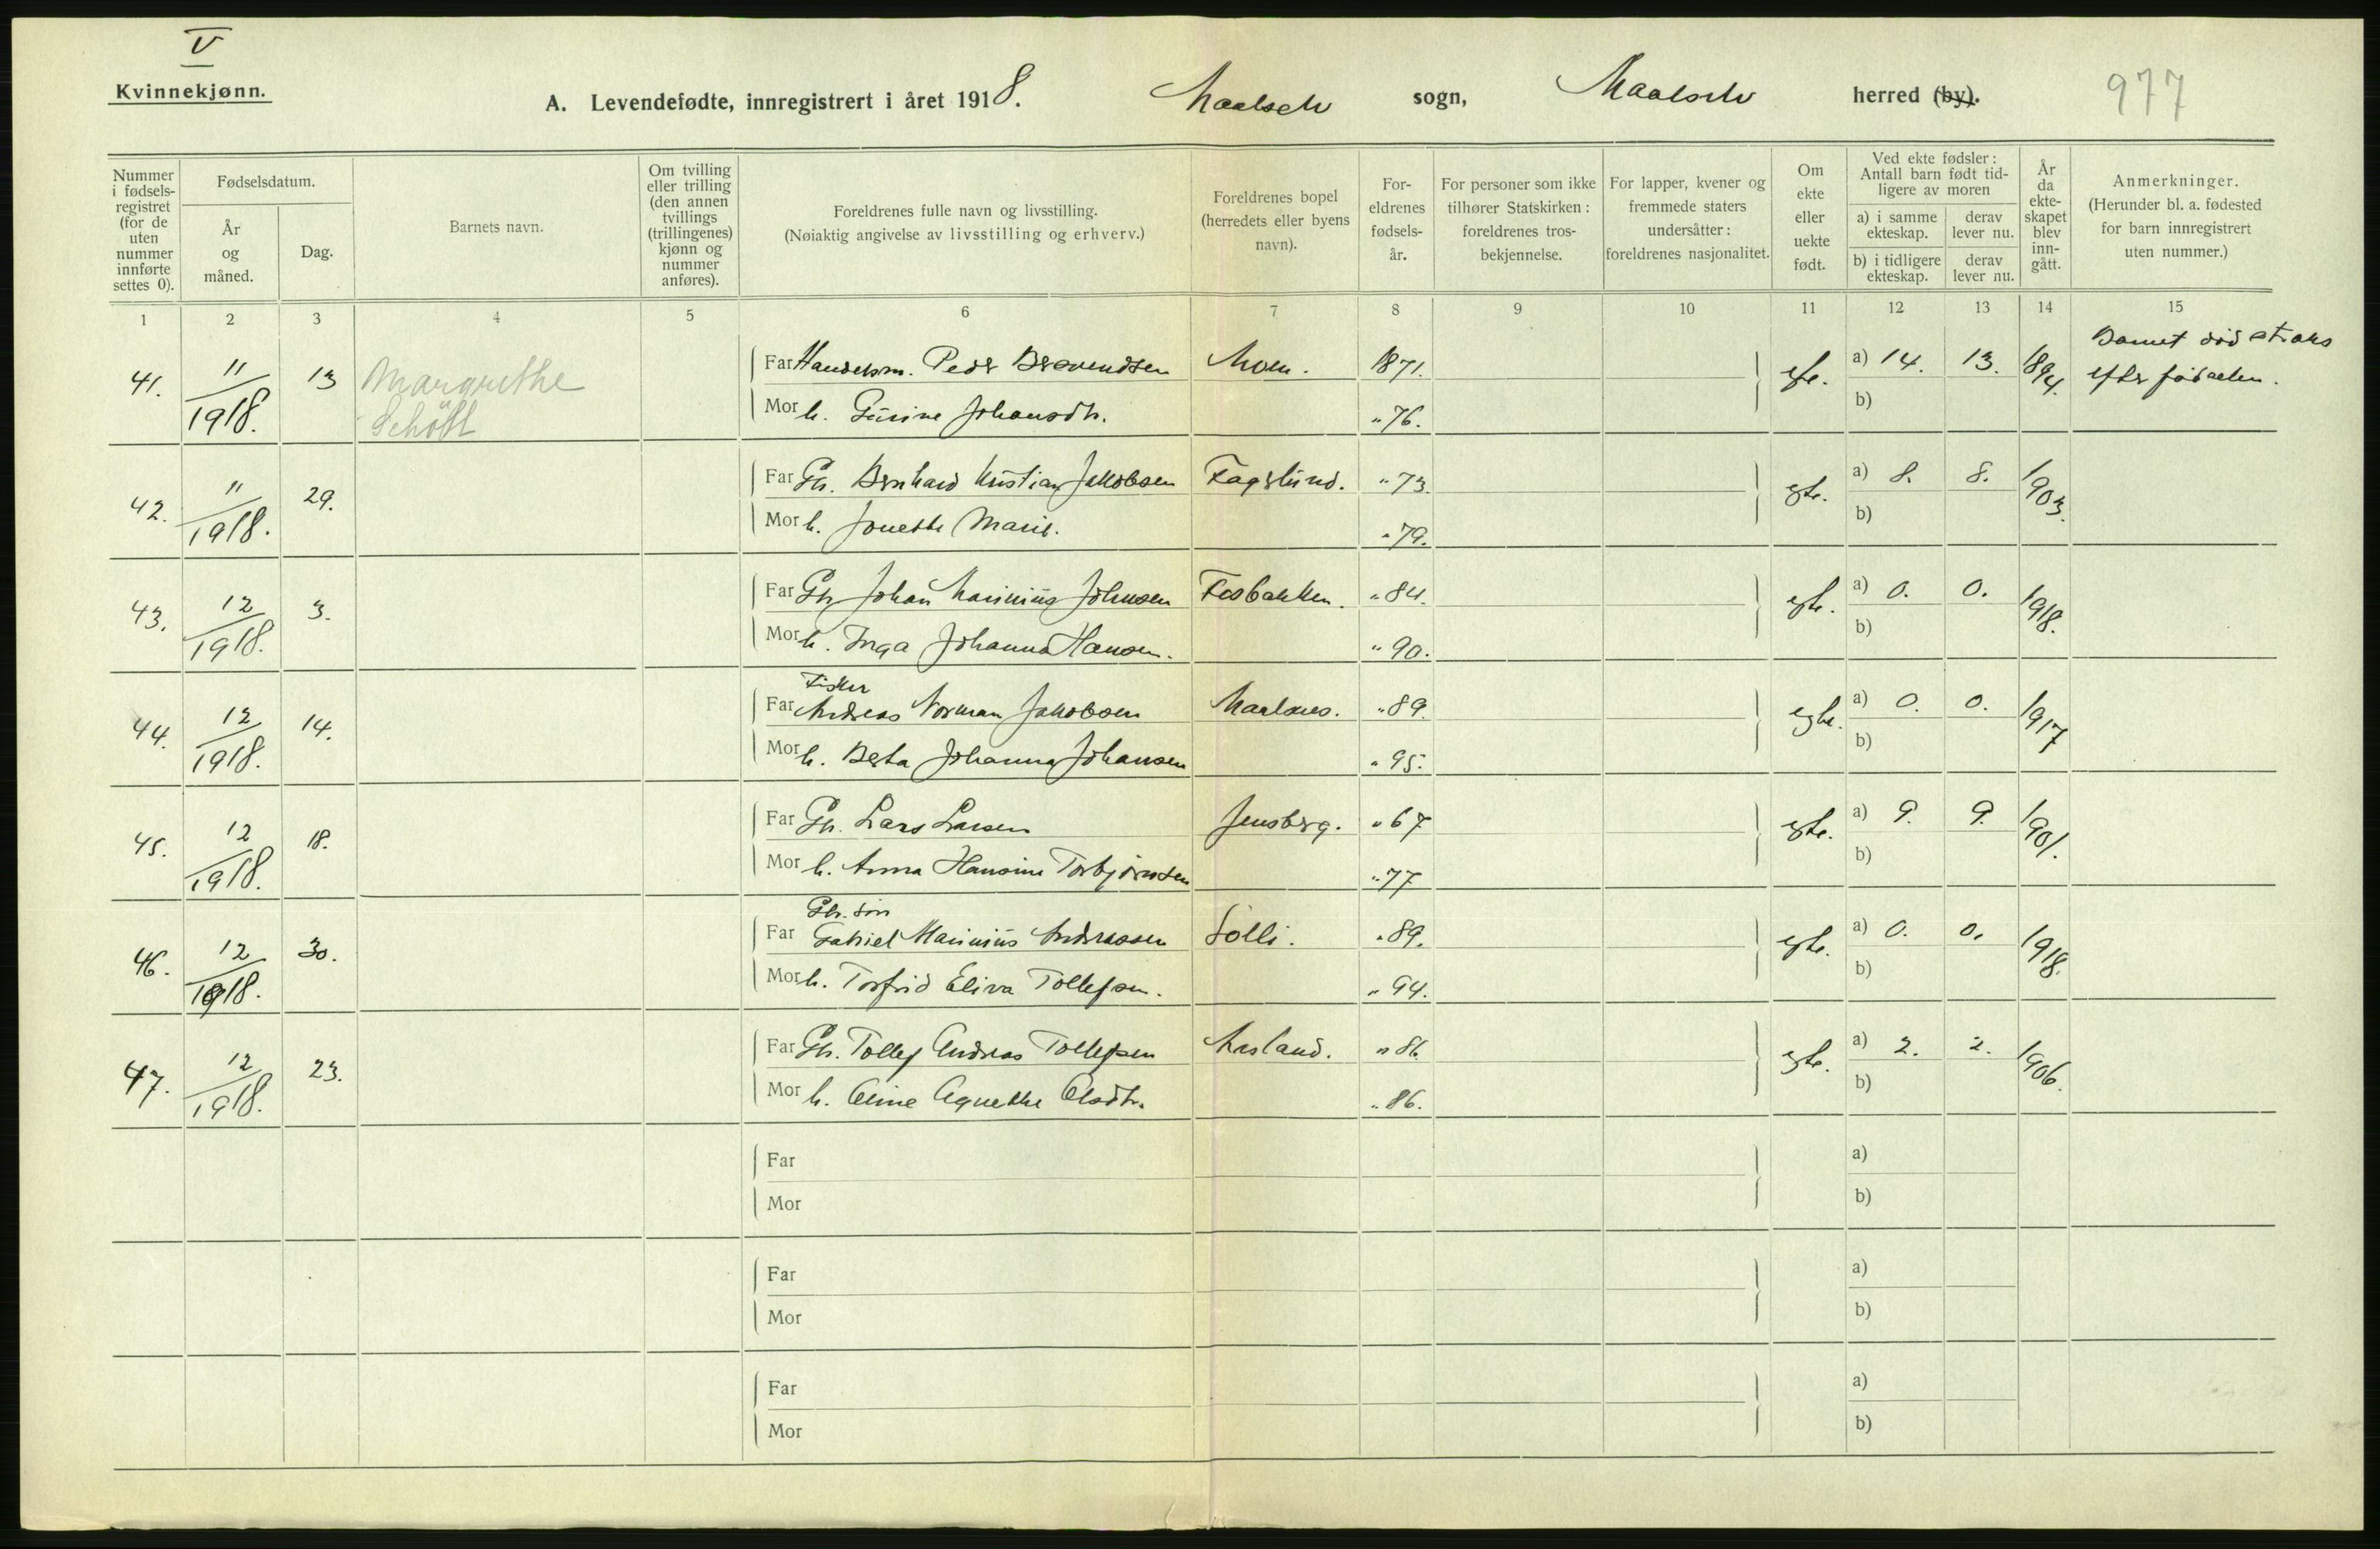 V
Kvinnekjønn.
A. Levendefødte, innregistrert i året 1918. Maalselv sogn, Maalselv herred (by). 977
Nummer i fødselsregistret (for de uten nummer innførte settes 0).
Fødselsdatum.
År og måned.
Dag.
Barnets navn.
Om tvilling eller trilling (den annen tvillings (trillingenes) kjønn og nummer anføres).
Foreldrenes fulle navn og livsstilling.
(Nøiaktig angivelse av livsstilling og erhverv.)
Foreldrenes bopel (herredets eller byens navn).
Foreldrenes fødselsår.
For personer som ikke tilhører Statskirken: foreldrenes trosbekjennelse.
For lapper, kvener og fremmede staters undersåtter: foreldrenes nasjonalitet.
Om ekte eller uekte født.
Ved ekte fødsler: Antall barn født tidligere av moren
a) i samme ekteskap. derav lever nu.
b) i tidligere ekteskap. derav lever nu.
År da ekteskapet blev inngått.
Anmerkninger.
(Herunder bl. a. fødested for barn innregistrert uten nummer.)
1 2 3 4 5 6 7 8 9 10 11 12 13 14 15
41. 11/1918. 13 Margrethe
Far Handelsm. Peder Moen. 1871. a) 14. 13. 1894. Barnet död straks
efter födselen.
Mor h. Gurine Johansdtr. " 76. b)
42. 11/1918. 29.
Far Gbr. Bernhard Kristian Jakobsen Fagerlund. " 73. egte. a) 8. 8. 1903.
Mor h. Jonette Marie. " 79. b)
43. 12/1918. 3.
Far Gbr. Johan Marinius Johnsen Fosbakken. " 84. egte. a) 0. 0. 1918.
Mor h. Inga Johanna Hansen. " 90. b)
44. 12/1918. 14.
Fisker
Far Andreas Norman Jakobsen Maalsnes. " 89. egte. a) 0. 0. 1917
Mor h. Berta Johanna Johansen " 95. b)
45. 12/1918. 18.
Far Gbr. Lars Larsen Jensberg. " 67 egte. a) 9. 9. 1901.
Mor h. Anna Hansine Torbjørnsen " 77 b)
46. 12/1918. 30.
Gbr. søn
Far Gabriel Marinius Andreassen Solli. " 89. egte. a) 0. 0. 1918.
Mor h. Torfrid Eliva Tollefsen. " 94. b)
47. 12/1918. 23.
Far Gbr. Tollef Andreas Tollefsen " 86. egte. a) 2. 2. 1906.
Mor h. Agnethe Olsdtr. " 86. b)
Far a)
Mor b)
Far a)
Mor b)
Far a)
Mor b)